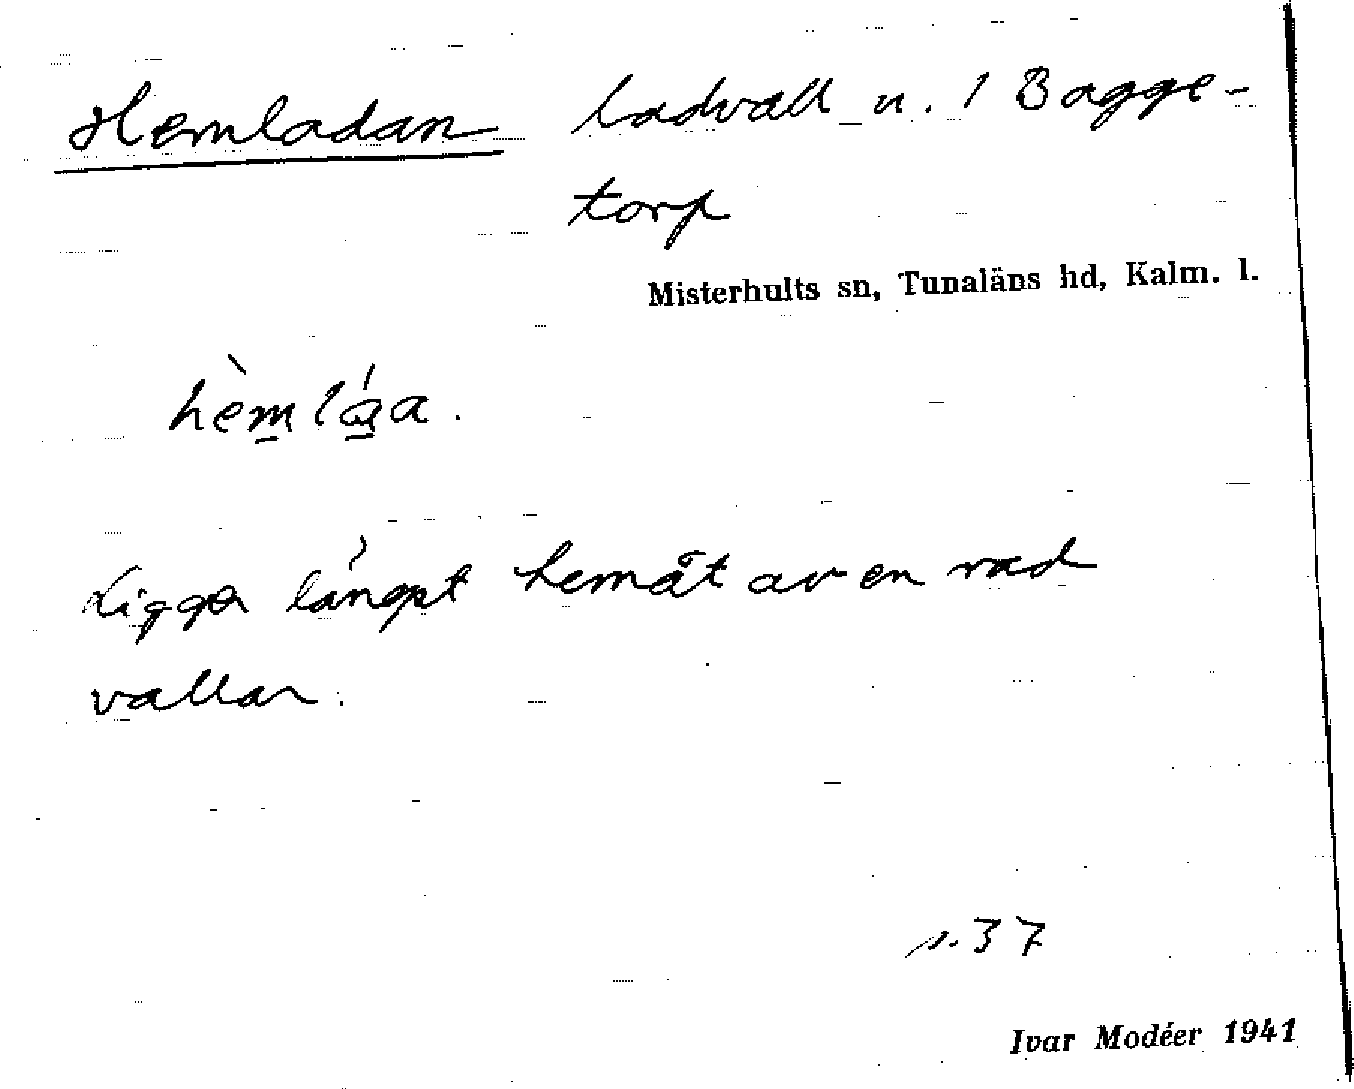 Hemladan ladvall u. 1 Bagge-
torp
Misterhults sn, Tunaläns hd, Kalm. l.
hèmlá̱a.
Ligger längst hemåt av en rad
vallar.
s. 37
Ivar Modéer 1941